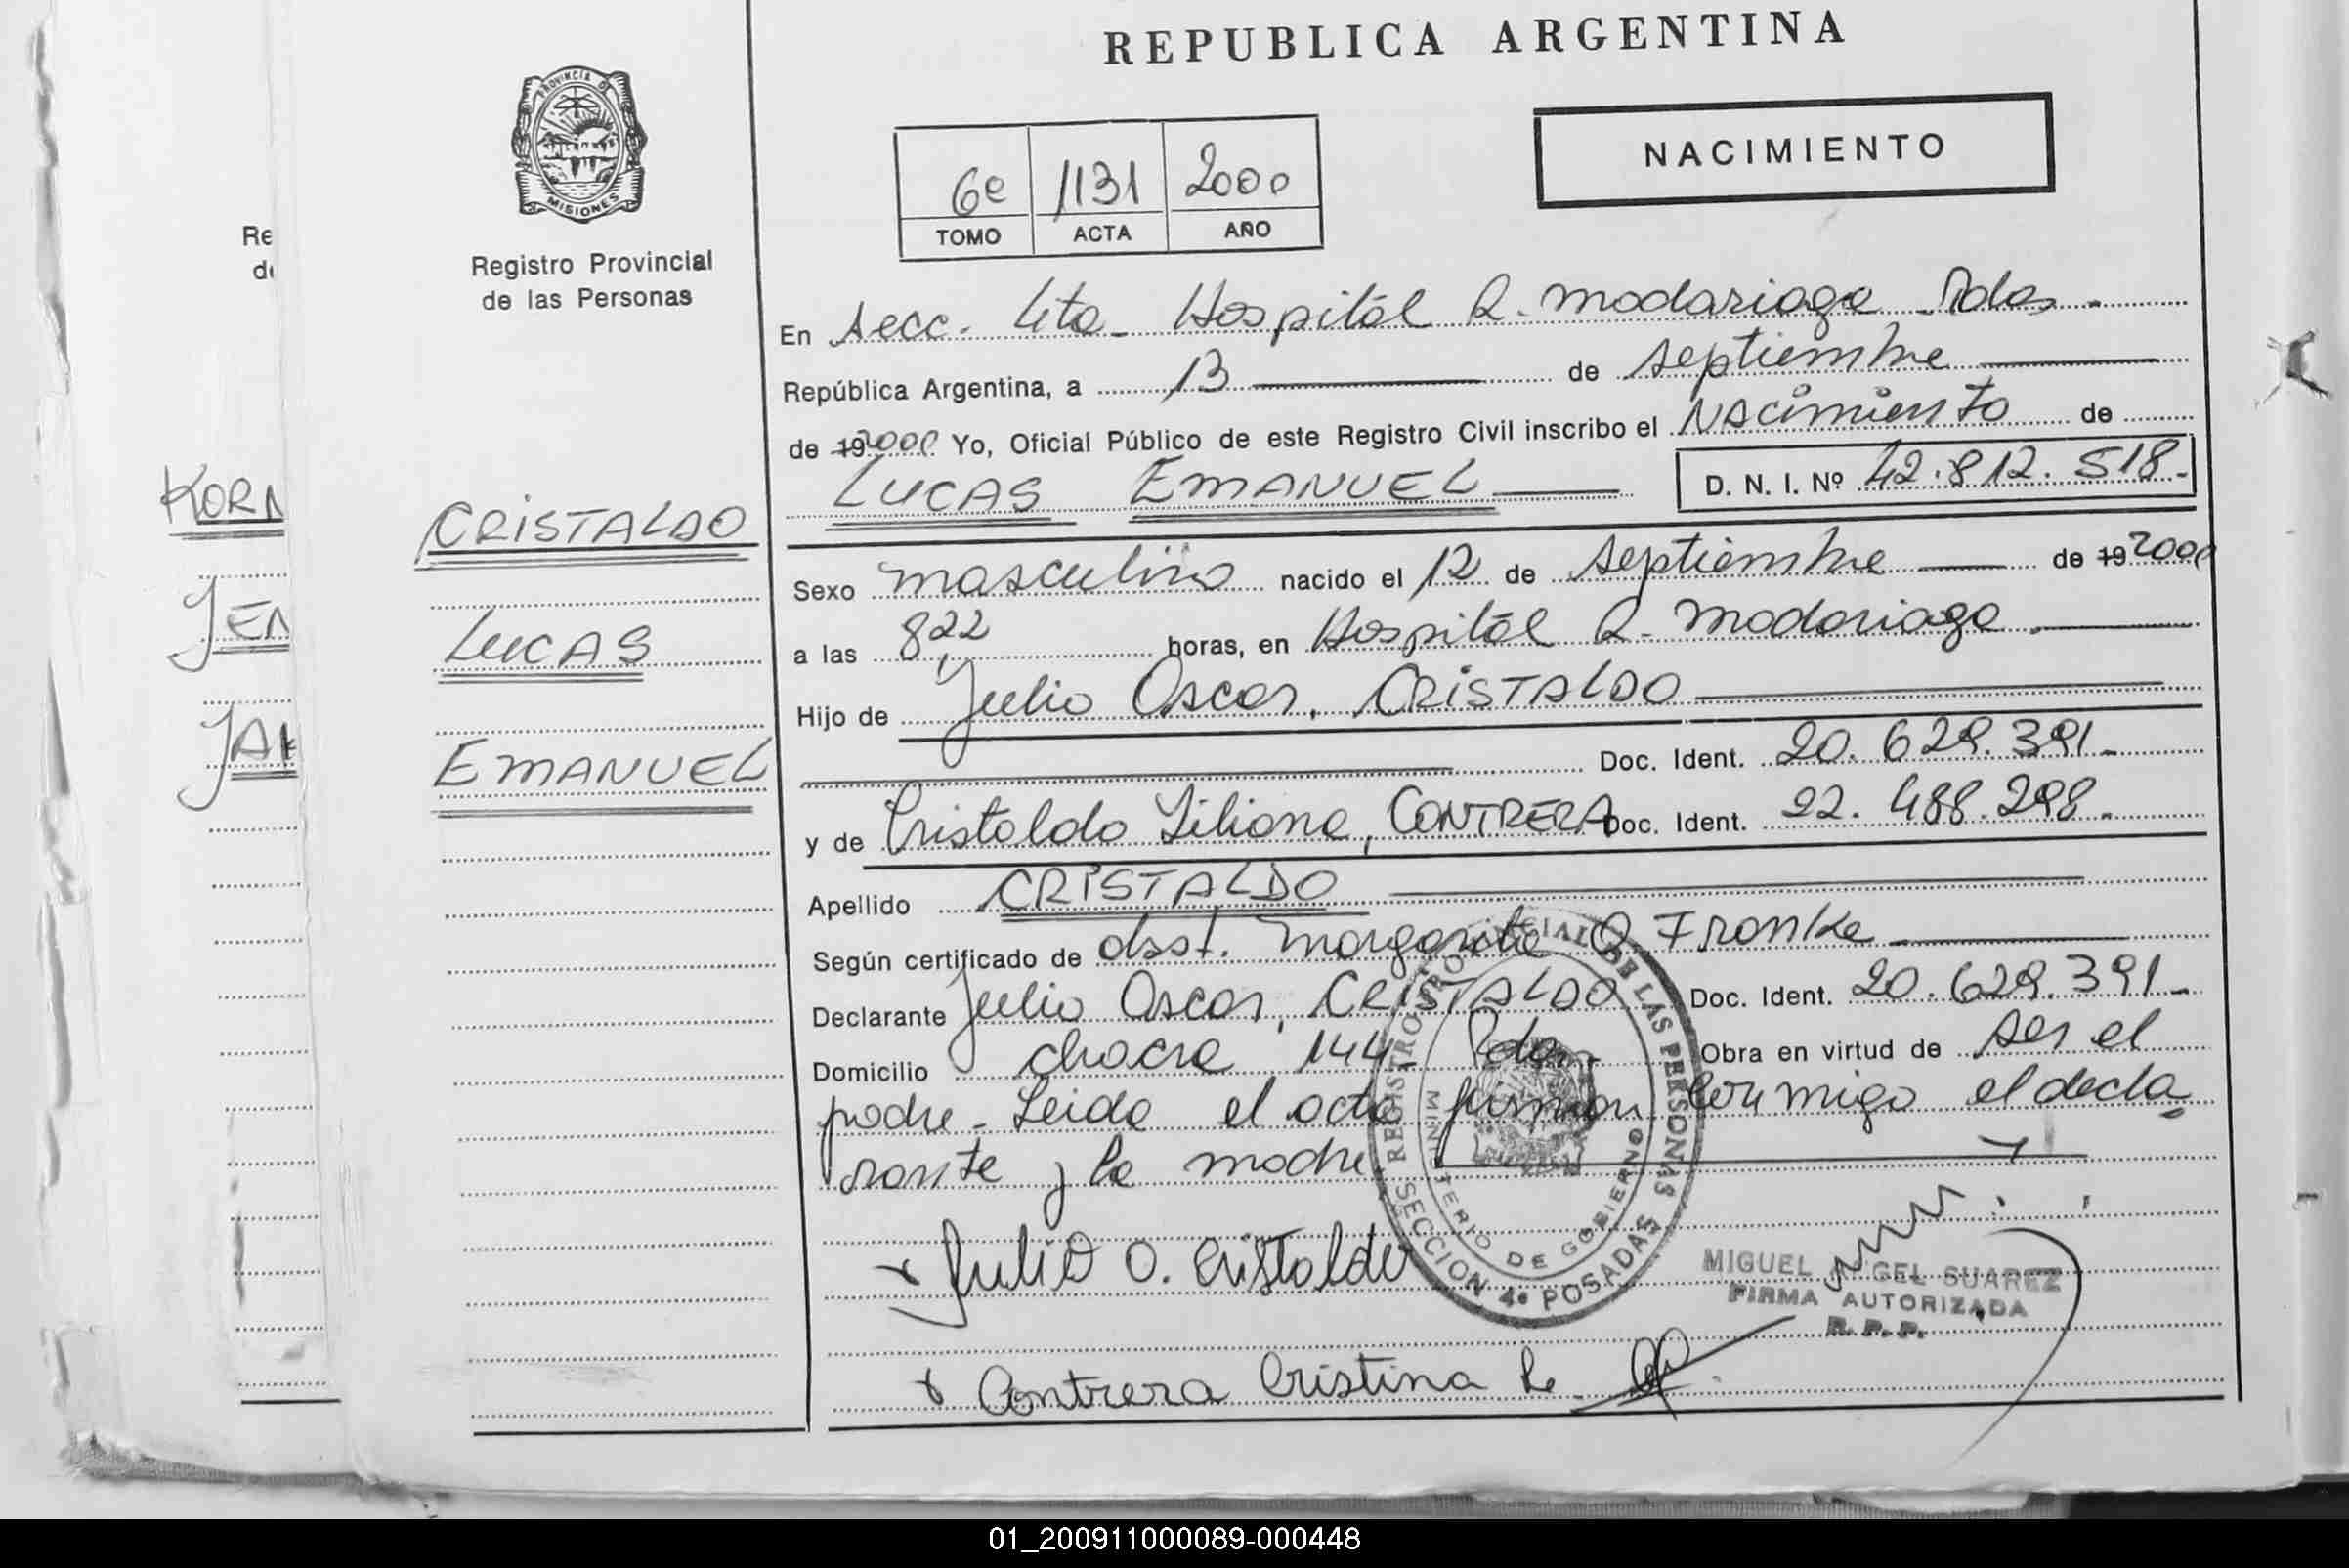 REPUBLICA ARGENTINA
PROVINCIA DE
MISIONES
NACIMIENTO
6º 1131 2000
TOMO ACTA AÑO
Registro Provincial
de las Personas
Re
de
En Secc. 4ta. Hospital R. Madariaga Pdas.
República Argentina, a 13 de septiembre
de 19 2000 Yo, Oficial Público de este Registro Civil inscribo el Nacimiento de
LUCAS EMANUEL D. N. I. Nº 42.812.518.-
KORN
CRISTALDO
Sexo masculino nacido el 12 de septiembre de 19 2000
JEN
LUCAS
a las 8,22 horas, en Hospital R. Madariaga
Hijo de Julio Oscar, CRISTALDO
JAK
EMANUEL
Doc. Ident. 20.629.391.-
y de Cristaldo Liliana, CONTRERA Doc. Ident. 22.488.298.-
Apellido CRISTALDO
Según certificado de obst. Margarita Q Franke
Declarante Julio Oscar, CRISTALDO Doc. Ident. 20.629.391.-
Domicilio chacra 144 Pdas.- Obra en virtud de ser el
padre.- Leida el acta firman conmigo el decla
rante y la madre
REGISTRO PROVINCIAL DE LAS PERSONAS
MINISTERIO DE GOBIERNO
SECCION 4º POSADAS
Julio O. Cristaldo
MIGUEL ANGEL SUAREZ
FIRMA AUTORIZADA
R. P. P.
Contrera Cristina L.
01_200911000089-000448